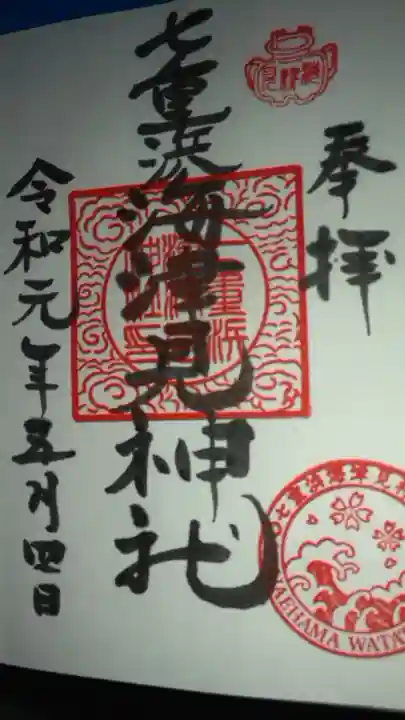 奉拝
七重浜海津見神社
令和元年五月四日
七重浜海津見
AEHAMA WATAT